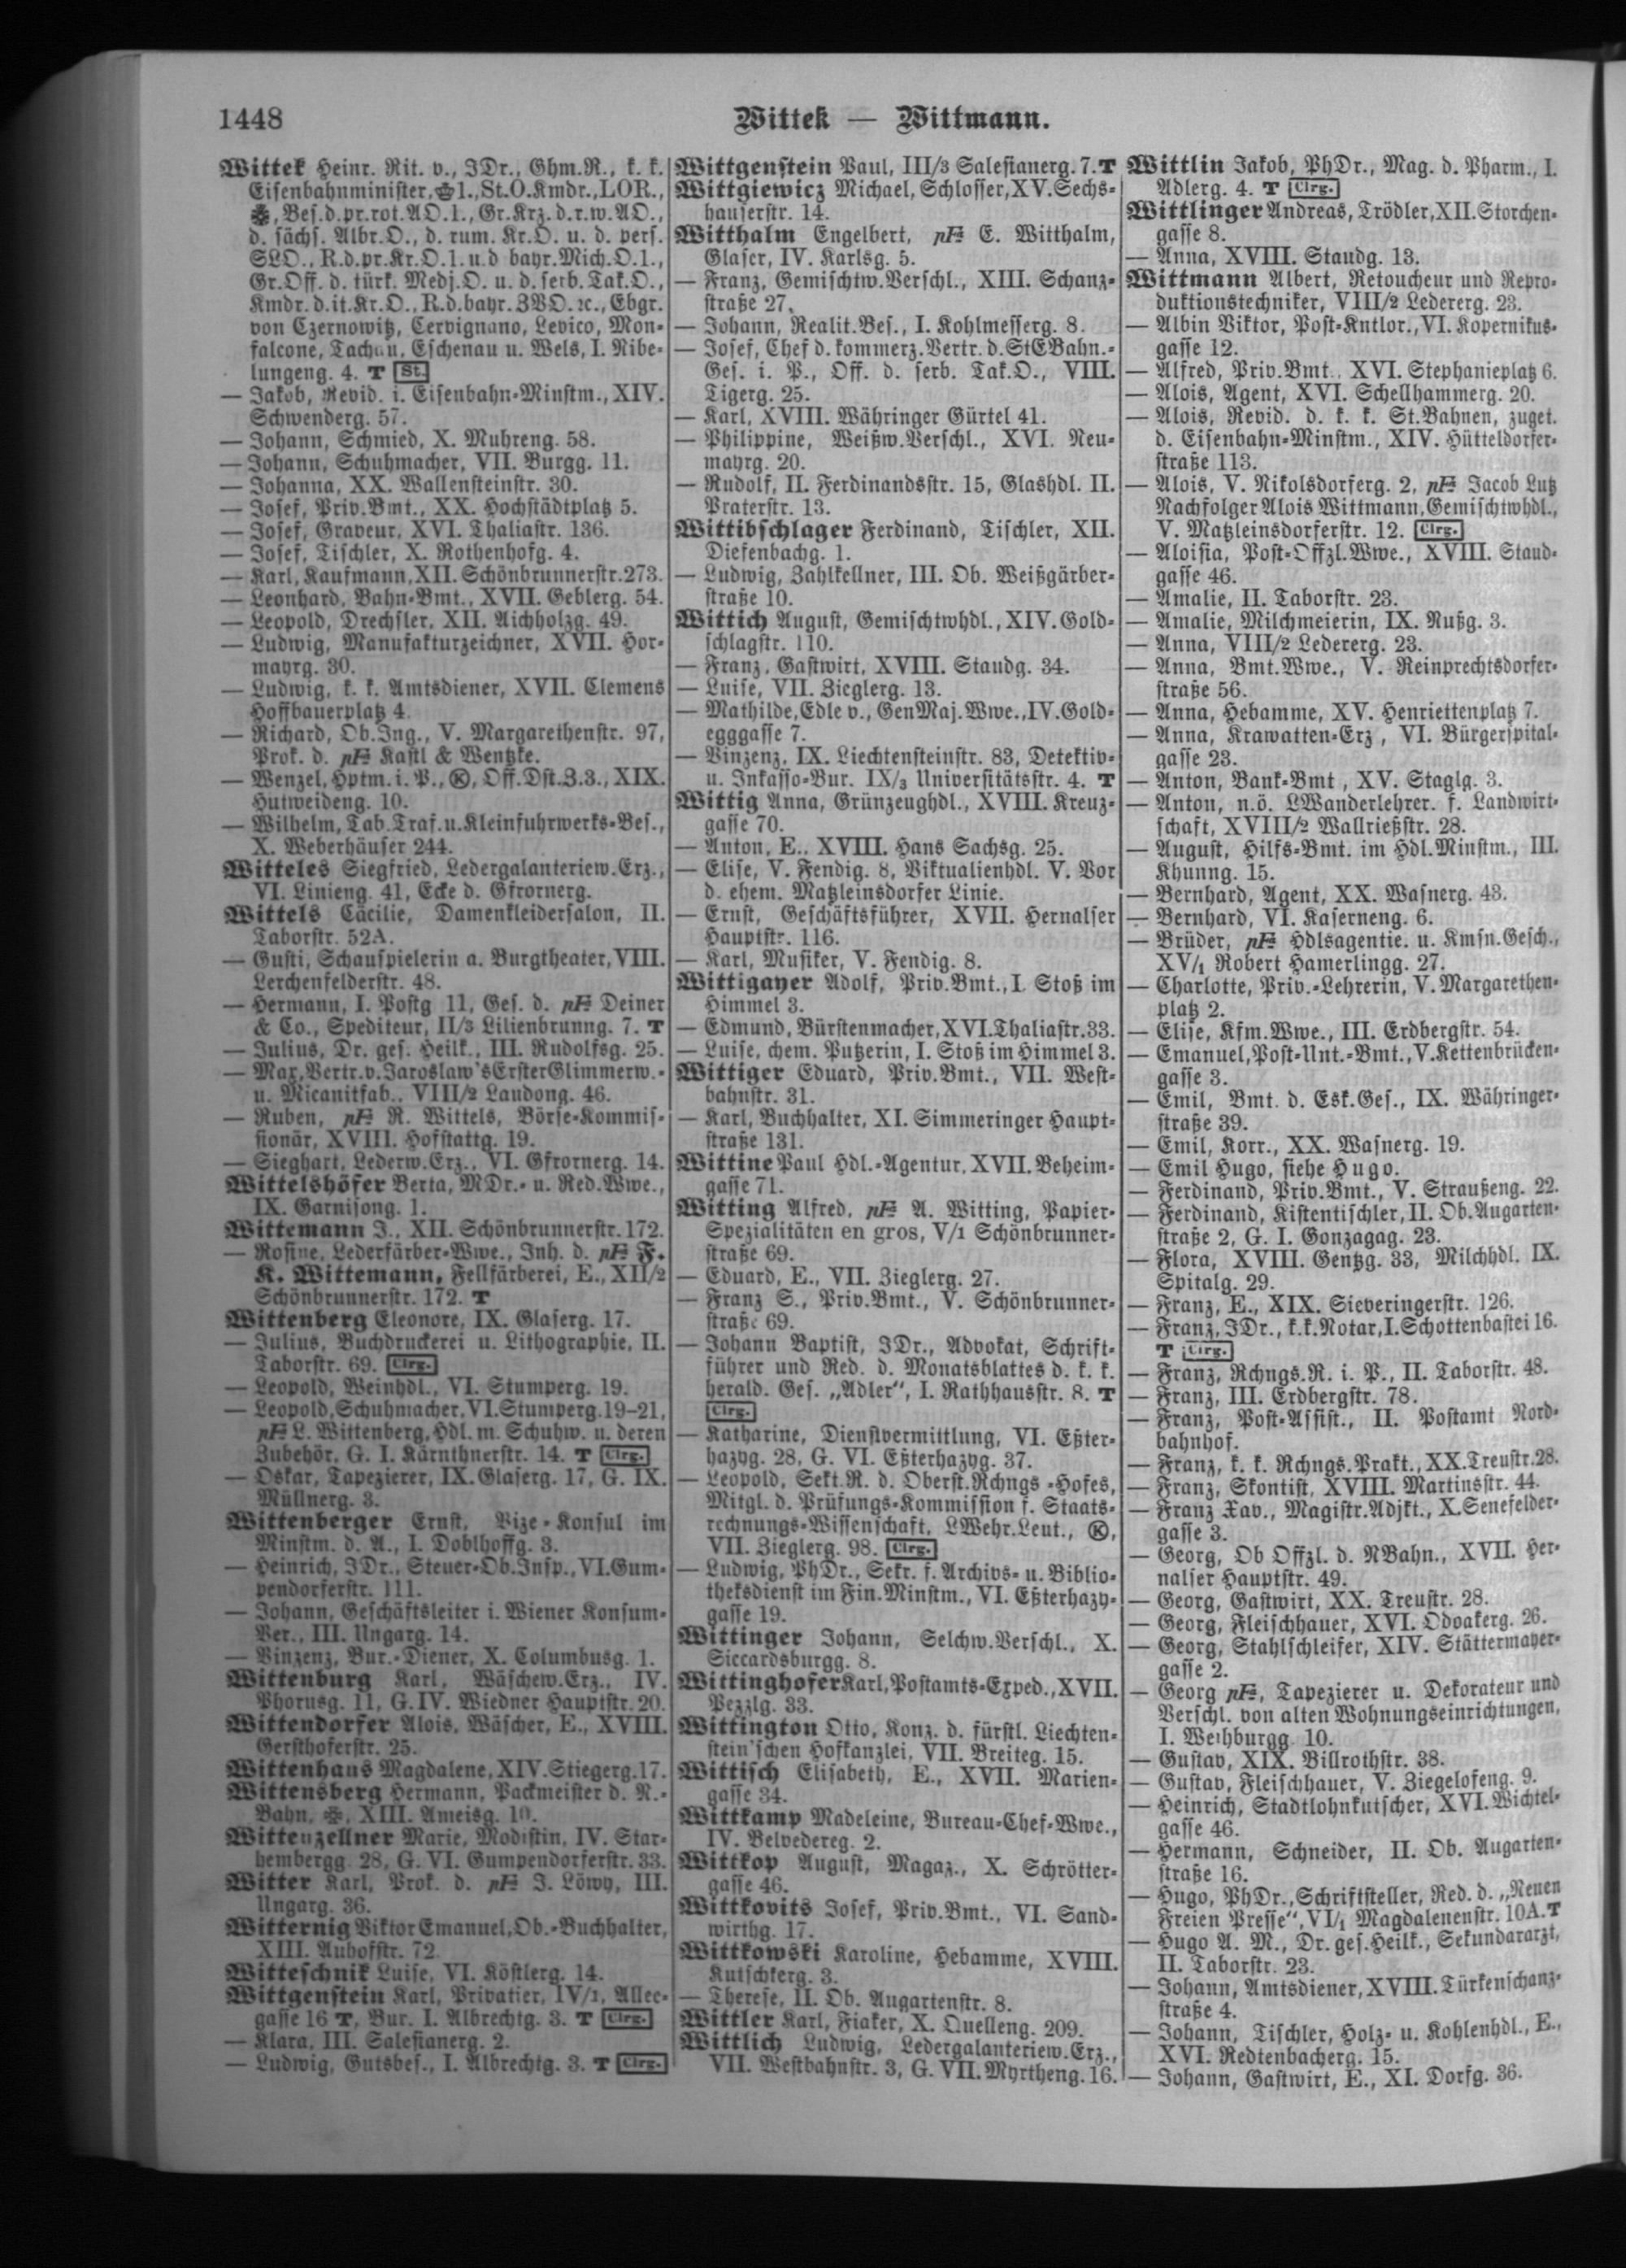 1448
Wittek — Wittmann.
Wittek Heinr. Rit. v., JDr., Ghm.R., k. k.
Eisenbahnminister, 1., St.O.Kmdr., LOR.,
Bes.d.pr.rot.AO.1., Gr.Krz.d.r.w.AO.,
d. sächs. Albr.O., d. rum. Kr.O. u. d. pers.
SLO., R.d.pr.Kr.O.1. u.d bayr.Mich.O.1.,
Gr.Off. d. türk. Medj.O. u. d. serb. Tak.O.,
Kmdr. d. it. Kr.O., R.d.bayr. ZVO. ꝛc., Ebgr.
von Czernowitz, Cervignano, Levico, Mon-
falcone, Tachau, Eschenau u. Wels, I. Nibe-
lungeng. 4. T St.
— Jakob, Revid. i. Eisenbahn-Minstm., XIV.
Schwenderg. 57.
— Johann, Schmied, X. Muhreng. 58.
— Johann, Schuhmacher, VII. Burgg. 11.
— Johanna, XX. Wallensteinstr. 30.
— Josef, Priv.Bmt., XX. Hochstädtplatz 5.
— Josef, Graveur, XVI. Thaliastr. 136.
— Josef, Tischler, X. Rothenhofg. 4.
— Karl, Kaufmann, XII. Schönbrunnerstr. 273.
— Leonhard, Bahn-Bmt., XVII. Geblerg. 54.
— Leopold, Drechsler, XII. Aichholzg. 49.
— Ludwig, Manufakturzeichner, XVII. Hor-
mayrg. 30.
— Ludwig, k. k. Amtsdiener, XVII. Clemens
Hoffbauerplatz 4.
— Richard, Ob.Ing., V. Margarethenstr. 97,
Prok. d. pF Kastl & Wentzke.
— Wenzel, Hptm. i. P., Ⓚ, Off.Dst.Z.3., XIX.
Hutweideng. 10.
— Wilhelm, Tab.Traf.u.Kleinfuhrwerks-Bes.,
X. Weberhäuser 244.
Witteles Siegfried, Ledergalanteriew.Erz.,
VI. Linieng. 41, Ecke d. Gfrornerg.
Wittels Cäcilie, Damenkleidersalon, II.
Taborstr. 52A.
— Gusti, Schauspielerin a. Burgtheater, VIII.
Lerchenfelderstr. 48.
— Hermann, I. Postg 11, Ges. d. pF Deiner
& Co., Spediteur, II/3 Lilienbrunng. 7. T
— Julius, Dr. ges. Heilk., III. Rudolfsg. 25.
— Max, Vertr.v.Jaroslaw'sErsterGlimmerw.-
u. Micanitfab., VIII/2 Laudong. 46.
— Ruben, pF R. Wittels, Börse-Kommis-
sionär, XVIII. Hofstattg. 19.
— Sieghart, Lederw.Erz., VI. Gfrornerg. 14.
Wittelshöfer Berta, MDr.- u. Red.Wwe.,
IX. Garnisong. 1.
Wittemann J., XII. Schönbrunnerstr. 172.
— Rosine, Lederfärber-Wwe., Inh. d. pF F.
K. Wittemann, Fellfärberei, E., XII/2
Schönbrunnerstr. 172. T
Wittenberg Eleonore, IX. Glaserg. 17.
— Julius, Buchdruckerei u. Lithographie, II.
Taborstr. 69. Clrg.
— Leopold, Weinhdl., VI. Stumperg. 19.
— Leopold, Schuhmacher, VI.Stumperg.19–21,
pF L. Wittenberg, Hdl. m. Schuhw. u. deren
Zubehör, G. I. Kärnthnerstr. 14. T Clrg.
— Oskar, Tapezierer, IX. Glaserg. 17, G. IX.
Müllnerg. 3.
Wittenberger Ernst, Vize-Konsul im
Minstm. d. A., I. Doblhoffg. 3.
— Heinrich, JDr., Steuer-Ob.Insp., VI.Gum-
pendorferstr. 111.
— Johann, Geschäftsleiter i. Wiener Konsum-
Ver., III. Ungarg. 14.
— Vinzenz, Bur.-Diener, X. Columbusg. 1.
Wittenburg Karl, Wäschew.Erz., IV.
Phorusg. 11, G. IV. Wiedner Hauptstr. 20.
Wittendorfer Alois, Wäscher, E., XVIII.
Gersthoferstr. 25.
Wittenhaus Magdalene, XIV.Stiegerg.17.
Wittensberg Hermann, Packmeister d. N.-
Bahn, XIII. Ameisg. 10.
Wittenzellner Marie, Modistin, IV. Star-
hembergg. 28, G. VI. Gumpendorferstr. 33.
Witter Karl, Prok. d. pF J. Löwy, III.
Ungarg. 36.
Witternig Viktor Emanuel, Ob.-Buchhalter,
XIII. Auhofstr. 72.
Witteschnik Luise, VI. Köstlerg. 14.
Wittgenstein Karl, Privatier, IV/1, Allee-
gasse 16 T, Bur. I. Albrechtg. 3. T Clrg.
— Klara, III. Salesianerg. 2.
— Ludwig, Gutsbes., I. Albrechtg. 3. T Clrg.
Wittgenstein Paul, III/3 Salesianerg. 7. T
Wittgiewicz Michael, Schlosser, XV. Sechs-
hauserstr. 14.
Witthalm Engelbert, pF E. Witthalm,
Glaser, IV. Karlsg. 5.
— Franz, Gemischtw.Verschl., XIII. Schanz-
straße 27.
— Johann, Realit.Bes., I. Kohlmesserg. 8.
— Josef, Chef d. kommerz. Vertr. d. StEBahn.-
Ges. i. P., Off. d. serb. Tak.O., VIII.
Tigerg. 25.
— Karl, XVIII. Währinger Gürtel 41.
— Philippine, Weißw.Verschl., XVI. Neu-
mayrg. 20.
— Rudolf, II. Ferdinandsstr. 15, Glashdl. II.
Praterstr. 13.
Wittibschlager Ferdinand, Tischler, XII.
Diefenbachg. 1.
— Ludwig, Zahlkellner, III. Ob. Weißgärber-
straße 10.
Wittich August, Gemischtwhdl., XIV. Gold-
schlagstr. 110.
— Franz, Gastwirt, XVIII. Staudg. 34.
— Luise, VII. Zieglerg. 13.
— Mathilde, Edle v., GenMaj.Wwe., IV.Gold-
egggasse 7.
— Vinzenz, IX. Liechtensteinstr. 83, Detektiv-
u. Inkasso-Bur. IX/3 Universitätsstr. 4. T
Wittig Anna, Grünzeughdl., XVIII. Kreuz-
gasse 70.
— Anton, E., XVIII. Hans Sachsg. 25.
— Elise, V. Fendig. 8, Viktualienhdl. V. Vor
d. ehem. Matzleinsdorfer Linie.
— Ernst, Geschäftsführer, XVII. Hernalser
Hauptstr. 116.
— Karl, Musiker, V. Fendig. 8.
Wittigayer Adolf, Priv.Bmt., I. Stoß im
Himmel 3.
— Edmund, Bürstenmacher, XVI.Thaliastr.33.
— Luise, chem. Putzerin, I. Stoß im Himmel 3.
Wittiger Eduard, Priv.Bmt., VII. West-
bahnstr. 31.
— Karl, Buchhalter, XI. Simmeringer Haupt-
straße 131.
Wittine Paul Hdl.-Agentur, XVII. Beheim-
gasse 71.
Witting Alfred, pF A. Witting, Papier-
Spezialitäten en gros, V/1 Schönbrunner-
straße 69.
— Eduard, E., VII. Zieglerg. 27.
— Franz S., Priv.Bmt., V. Schönbrunner-
straße 69.
— Johann Baptist, JDr., Advokat, Schrift-
führer und Red. d. Monatsblattes d. k. k.
herald. Ges. „Adler“, I. Rathhausstr. 8. T
Clrg.
— Katharine, Dienstvermittlung, VI. Eßter-
hazyg. 28, G. VI. Eßterhazyg. 37.
— Leopold, Sekt.R. d. Oberst.Rchngs -Hofes,
Mitgl. d. Prüfungs-Kommission f. Staats-
rechnungs-Wissenschaft, LWehr.Leut., Ⓚ,
VII. Zieglerg. 98. Clrg.
— Ludwig, PhDr., Sekr. f. Archivs- u. Biblio-
theksdienst im Fin.Minstm., VI. Eßterhazy-
gasse 19.
Wittinger Johann, Selchw.Verschl., X.
Siccardsburgg. 8.
Wittinghofer Karl, Postamts-Exped., XVII.
Pezzlg. 33.
Wittington Otto, Konz. d. fürstl. Liechten-
stein'schen Hofkanzlei, VII. Breiteg. 15.
Wittisch Elisabeth, E., XVII. Marien-
gasse 34.
Wittkamp Madeleine, Bureau-Chef-Wwe.,
IV. Belvedereg. 2.
Wittkop August, Magaz., X. Schrötter-
gasse 46.
Wittkovits Josef, Priv.Bmt., VI. Sand-
wirthg. 17.
Wittkowski Karoline, Hebamme, XVIII.
Kutschkerg. 3.
— Therese, II. Ob. Augartenstr. 8.
Wittler Karl, Fiaker, X. Quelleng. 209.
Wittlich Ludwig, Ledergalanteriew.Erz.,
VII. Westbahnstr. 3, G. VII. Myrtheng. 16.
Wittlin Jakob, PhDr., Mag. d. Pharm., I.
Adlerg. 4. T Clrg.
Wittlinger Andreas, Trödler, XII. Storchen-
gasse 8.
— Anna, XVIII. Staudg. 13.
Wittmann Albert, Retoucheur und Repro-
duktionstechniker, VIII/2 Ledererg. 23.
— Albin Viktor, Post-Kntlor., VI. Kopernikus-
gasse 12.
— Alfred, Priv.Bmt., XVI. Stephanieplatz 6.
— Alois, Agent, XVI. Schellhammerg. 20.
— Alois, Revid. d. k. k. St.Bahnen, zuget.
d. Eisenbahn-Minstm., XIV. Hütteldorfer-
straße 113.
— Alois, V. Nikolsdorferg. 2, pF Jacob Lutz
Nachfolger Alois Wittmann, Gemischtwhdl.,
V. Matzleinsdorferstr. 12. Clrg.
— Aloisia, Post-Offzl.Wwe., XVIII. Staud-
gasse 46.
— Amalie, II. Taborstr. 23.
— Amalie, Milchmeierin, IX. Nußg. 3.
— Anna, VIII/2 Ledererg. 23.
— Anna, Bmt.Wwe., V. Reinprechtsdorfer-
straße 56.
— Anna, Hebamme, XV. Henriettenplatz 7.
— Anna, Krawatten-Erz , VI. Bürgerspital-
gasse 23.
— Anton, Bank-Bmt , XV. Staglg. 3.
— Anton, n.ö. LWanderlehrer. f. Landwirt-
schaft, XVIII/2 Wallrießstr. 28.
— August, Hilfs-Bmt. im Hdl.Minstm., III.
Khunng. 15.
— Bernhard, Agent, XX. Wasnerg. 43.
— Bernhard, VI. Kaserneng. 6.
— Brüder, pF Hdlsagentie. u. Kmsn.Gesch.,
XV/1 Robert Hamerlingg. 27.
— Charlotte, Priv.-Lehrerin, V. Margarethen-
platz 2.
— Elise, Kfm.Wwe., III. Erdbergstr. 54.
— Emanuel, Post-Unt.-Bmt., V.Kettenbrücken-
gasse 3.
— Emil, Bmt. d. Esk.Ges., IX. Währinger-
straße 39.
— Emil, Korr., XX. Wasnerg. 19.
— Emil Hugo, siehe Hugo.
— Ferdinand, Priv.Bmt., V. Straußeng. 22.
— Ferdinand, Kistentischler, II. Ob. Augarten-
straße 2, G. I. Gonzagag. 23.
— Flora, XVIII. Gentzg. 33, Milchhdl. IX.
Spitalg. 29.
— Franz, E., XIX. Sieveringerstr. 126.
— Franz, JDr., k.k.Notar, I.Schottenbastei 16.
T Clrg.
— Franz, Rchngs.R. i. P., II. Taborstr. 48.
— Franz, III. Erdbergstr. 78.
— Franz, Post-Assist., II. Postamt Nord-
bahnhof.
— Franz, k. k. Rchngs.Prakt., XX.Treustr.28.
— Franz, Skontist, XVIII. Martinsstr. 44.
— Franz Xav., Magistr.Adjkt., X.Senefelder-
gasse 3.
— Georg, Ob Offzl. d. NBahn., XVII. Her-
nalser Hauptstr. 49.
— Georg, Gastwirt, XX. Treustr. 28.
— Georg, Fleischhauer, XVI. Odoakerg. 26.
— Georg, Stahlschleifer, XIV. Stättermayer-
gasse 2.
— Georg pF, Tapezierer u. Dekorateur und
Verschl. von alten Wohnungseinrichtungen,
I. Weihburgg. 10.
— Gustav, XIX. Billrothstr. 38.
— Gustav, Fleischhauer, V. Ziegelofeng. 9.
— Heinrich, Stadtlohnkutscher, XVI.Wichtel-
gasse 46.
— Hermann, Schneider, II. Ob. Augarten-
straße 16.
— Hugo, PhDr., Schriftsteller, Red. d. „Neuen
Freien Presse“, VI/1 Magdalenenstr. 10A. T
— Hugo A. M., Dr. ges.Heilk., Sekundararzt,
II. Taborstr. 23.
— Johann, Amtsdiener, XVIII. Türkenschanz-
straße 4.
— Johann, Tischler, Holz- u. Kohlenhdl., E.,
XVI. Redtenbacherg. 15.
— Johann, Gastwirt, E., XI. Dorfg. 36.